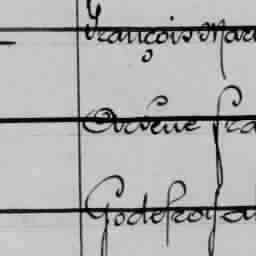 François Mar
Arsène fra
Godefroy al